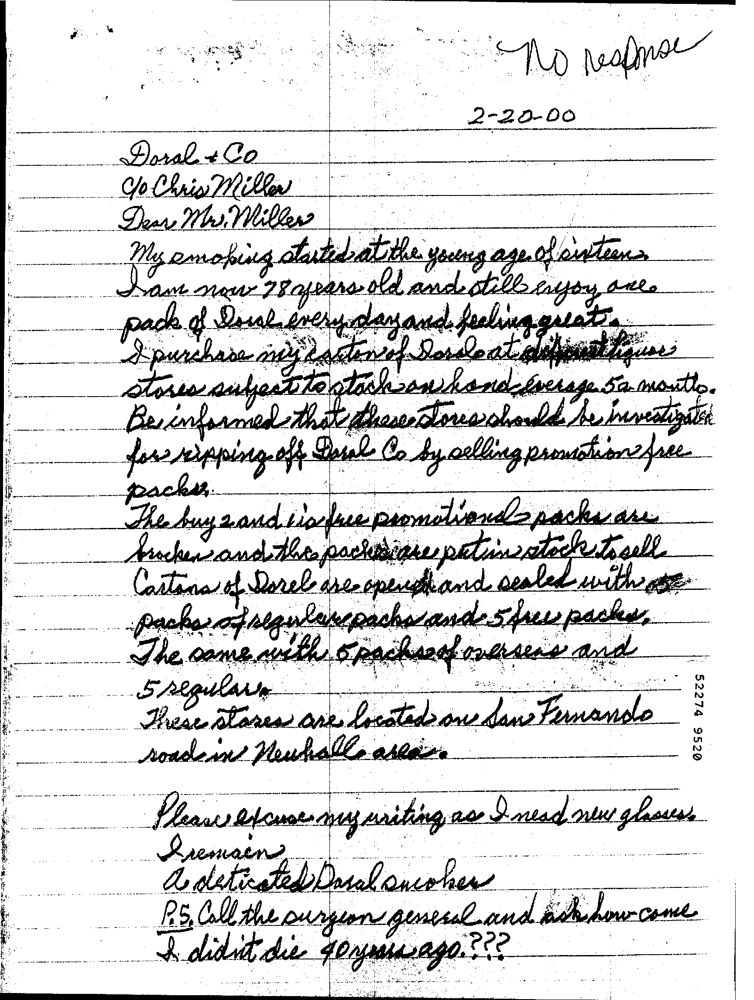 No response
2-20-00
Doral + Co
c/o Chris Miller
Dear Mr. Miller
My smoking started at the young age of sixteen.
I am now 78 years old and still enjoy one
pack of Doral every day and feeling great.
I purchase my carton of Dorals at different liquor
stores subject to stock on hand average 5 a month.
Be informed that these stores should be investigated
for ripping off Doral Co by selling promotion free
packs.
The buy 2 and 1 is free promotional packs are
brocken and the packs are put in stock to sell
Cartons of Dorel are opened and sealed with 5
packs of regular packs and 5 free packs.
The same with 5 packs of overseas and
5 regular.
These stores are located on San Fernando
road in Newhall area.
Please excuse my writing as I need new glasses.
I remain
a deticated Doral smoker
P.S. Call the surgeon general and ask how come
I didn't die 40 years ago.???
52274 9520